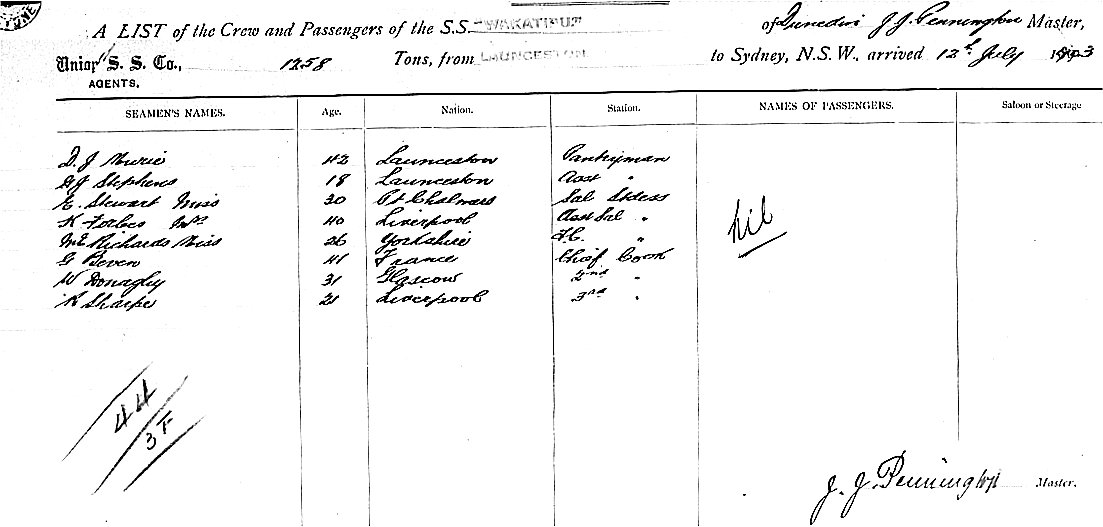 A LIST of the Crew and Passengers of the S.S. "WAKATIPU" of Dunedin J. J. Pennington Master,
Union S. S. Co., 1258 Tons, from LAUNCESTON to Sydney, N.S.W., arrived 12th July 1903
AGENTS.
SEAMEN'S NAMES. Age. Nation. Station. NAMES OF PASSENGERS. Saloon or Steerage
D. J 42 Launceston Pantryman
Stephens 18 Launceston Asst "
E. Stewart Miss 30 Pt Chalmers Sal Stdess
K Forbes Mrs 40 Liverpool Asst Sal "
Richards Miss 26 Yorkshire F.C. "
G Beven 41 France Chief Cook
W Donaghy 31 Glascow 2nd "
R Sharpe 21 Liverpool 3rd "
Nil
44
3 F
J. J. Pennington Master.